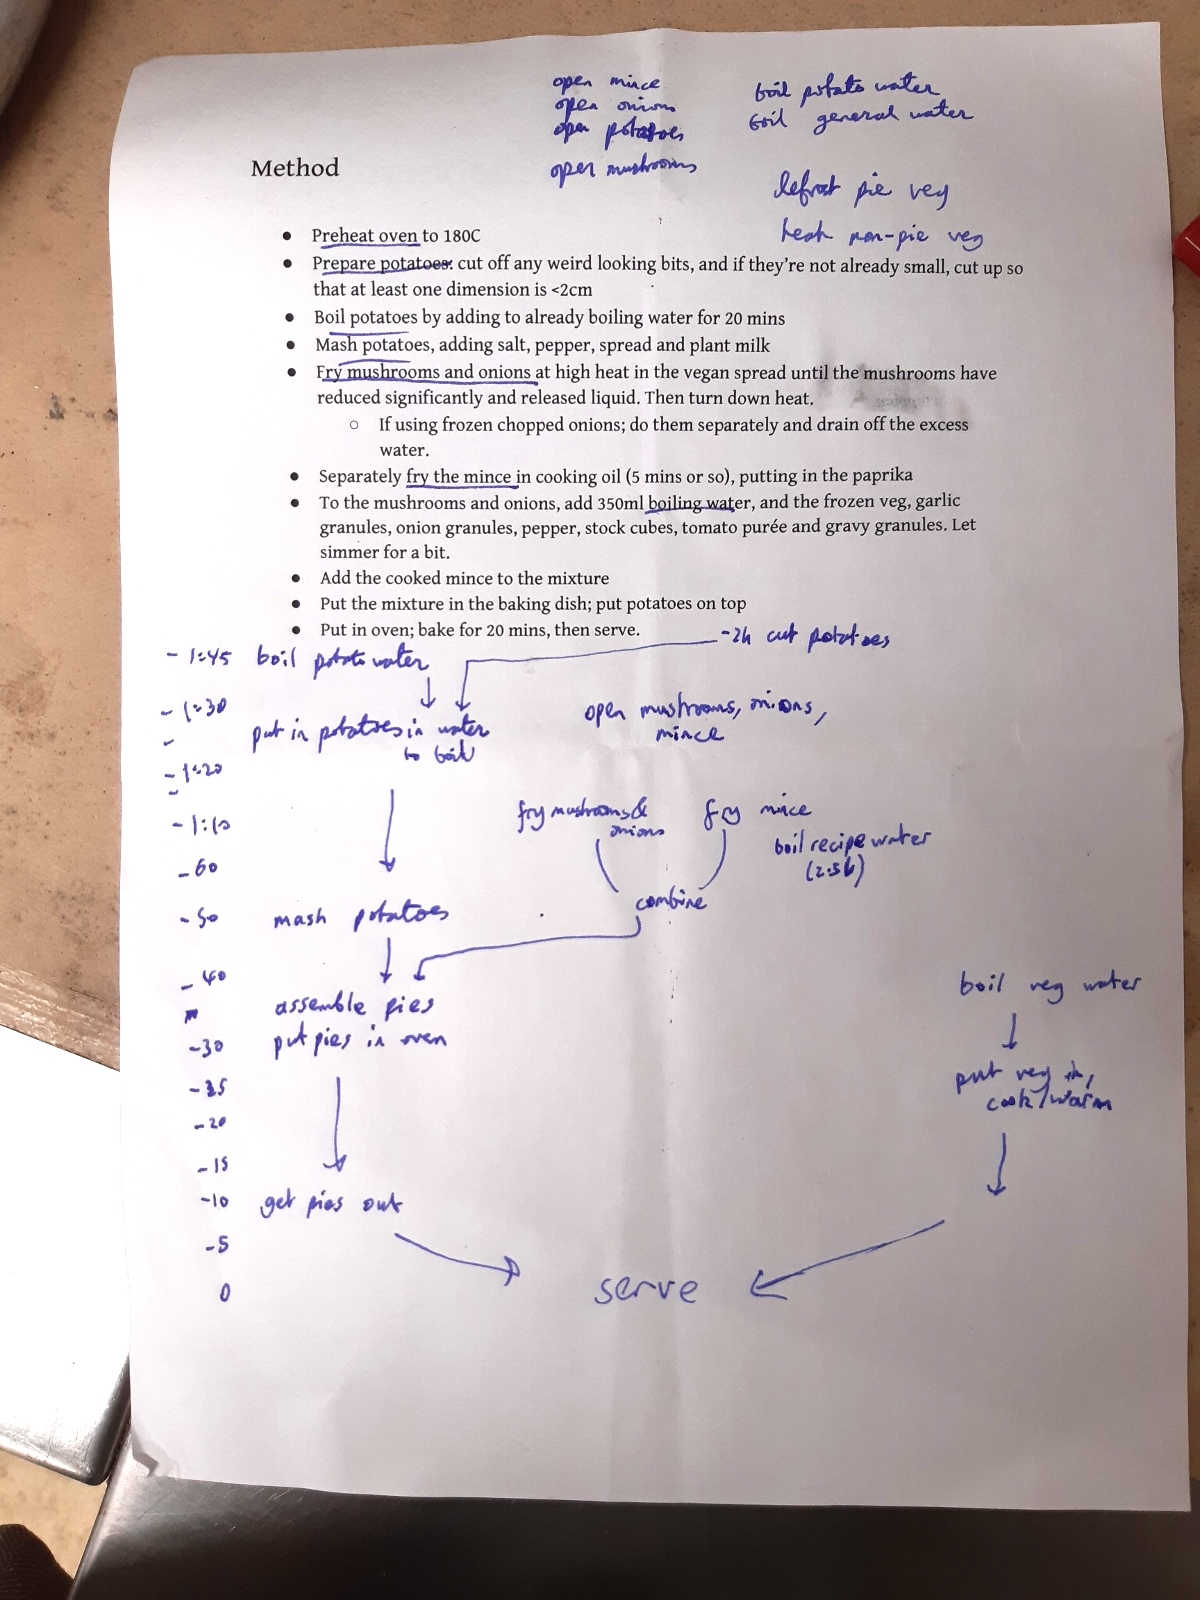 open mince
open onions
open potatoes
open mushrooms
boil potato water
boil general water
defrost pie veg
heat non-pie veg
Method
• Preheat oven to 180C
• Prepare potatoes: cut off any weird looking bits, and if they're not already small, cut up so
that at least one dimension is <2cm
• Boil potatoes by adding to already boiling water for 20 mins
• Mash potatoes, adding salt, pepper, spread and plant milk
• Fry mushrooms and onions at high heat in the vegan spread until the mushrooms have
reduced significantly and released liquid. Then turn down heat.
○ If using frozen chopped onions; do them separately and drain off the excess
water.
• Separately fry the mince in cooking oil (5 mins or so), putting in the paprika
• To the mushrooms and onions, add 350ml boiling water, and the frozen veg, garlic
granules, onion granules, pepper, stock cubes, tomato purée and gravy granules. Let
simmer for a bit.
• Add the cooked mince to the mixture
• Put the mixture in the baking dish; put potatoes on top
• Put in oven; bake for 20 mins, then serve.
-2h cut potatoes
-1:45 boil potato water
-1:30
put in potatoes in water
to boil
open mushrooms, onions,
mince
-1:20
-1:10
fry mushrooms &
onions
fry mince
boil recipe water
(2.5L)
-60
combine
-50 mash potatoes
-40
assemble pies
boil veg water
-30 put pies in oven
put veg in,
cook/warm
-25
-20
-15
-10 get pies out
-5
0
serve